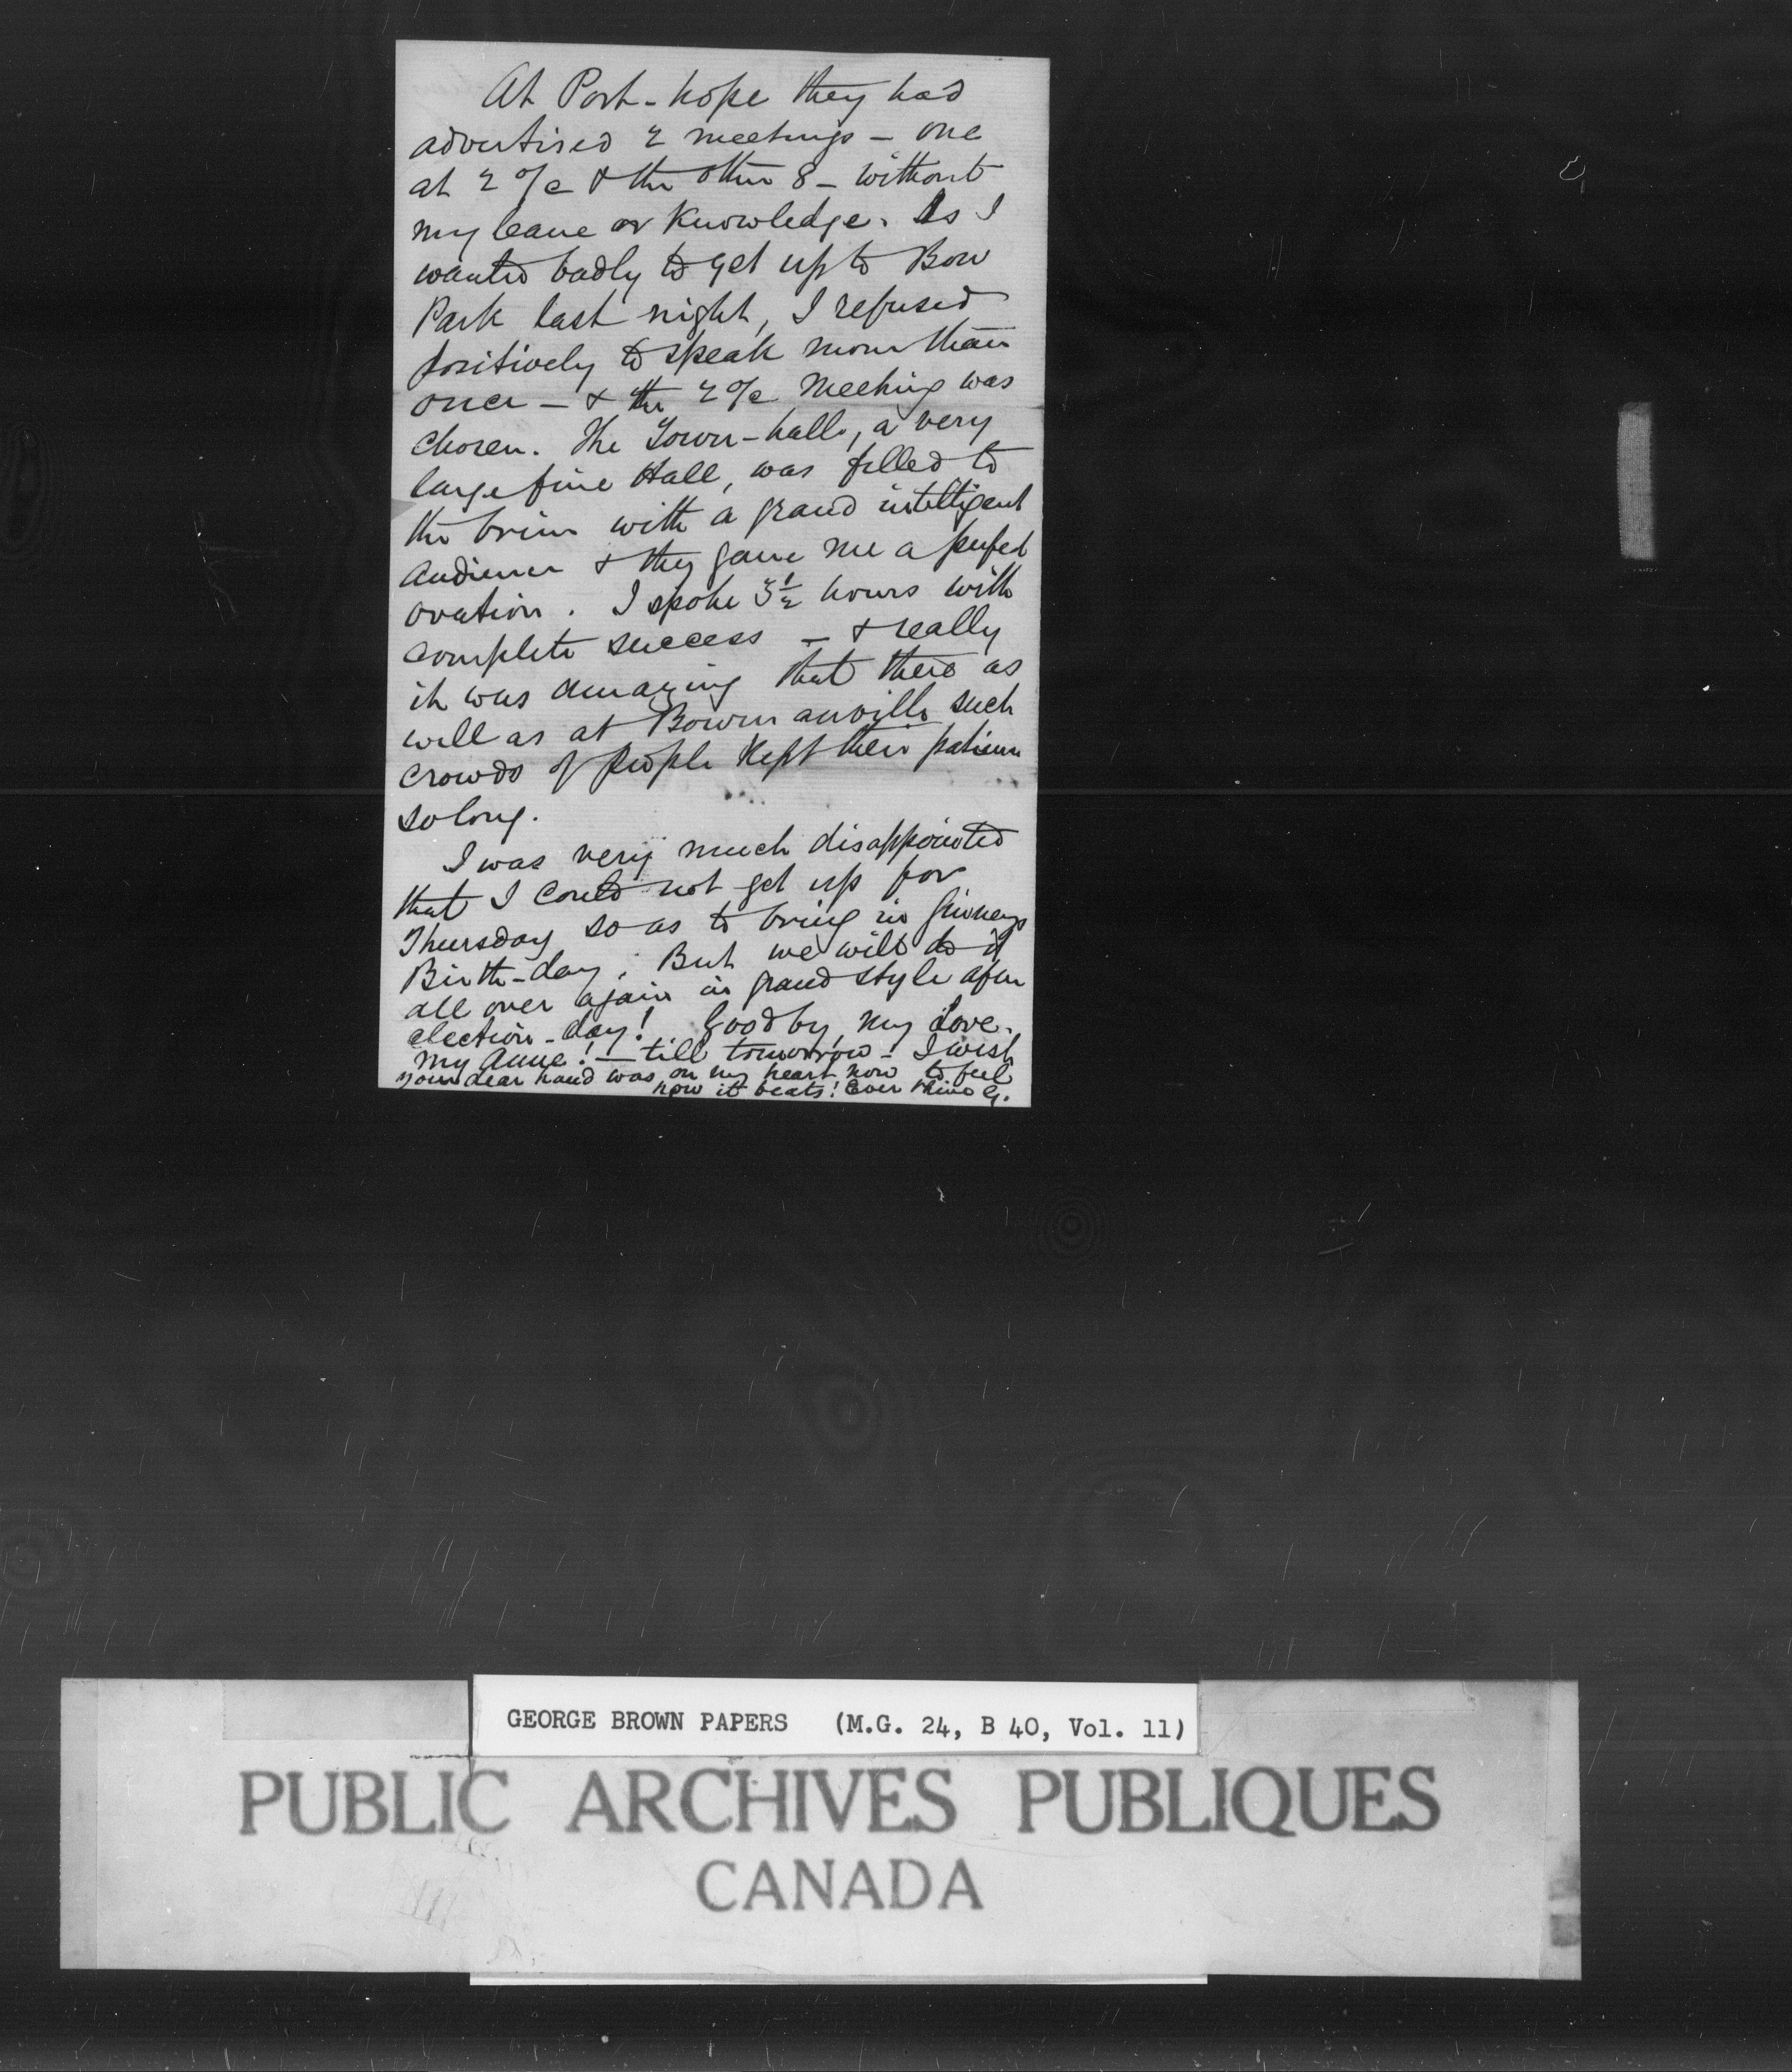 At Port-hope they had
advertised 2 meetings — one
at 2 o/c & the other 8 — without
my leave or knowledge. As I
wanted badly to get up to Bow
Park last night, I refused
positively to speak more than
once — & the 2 o/c meeting was
chosen. The Town-hall, a very
large fine Hall, was filled to
the brim with a grand intelligent
audience & they gave me a perfect
ovation. I spoke 3½ hours with
complete success — & really
it was amazing that there as
well as at Bowmanville such
crowds of people kept their patience
so long.
I was very much disappointed
that I could not get up for
Thursday so as to bring in
Birth-day. But we will do it
all over again in grand style after
election-day! Good by, my Love.
my Anne! — till tomorrow — I wish
your dear hand was on my heart now to feel
how it beats! Ever thine G.
GEORGE BROWN PAPERS (M.G. 24, B 40, Vol. 11)
PUBLIC ARCHIVES PUBLIQUES
CANADA